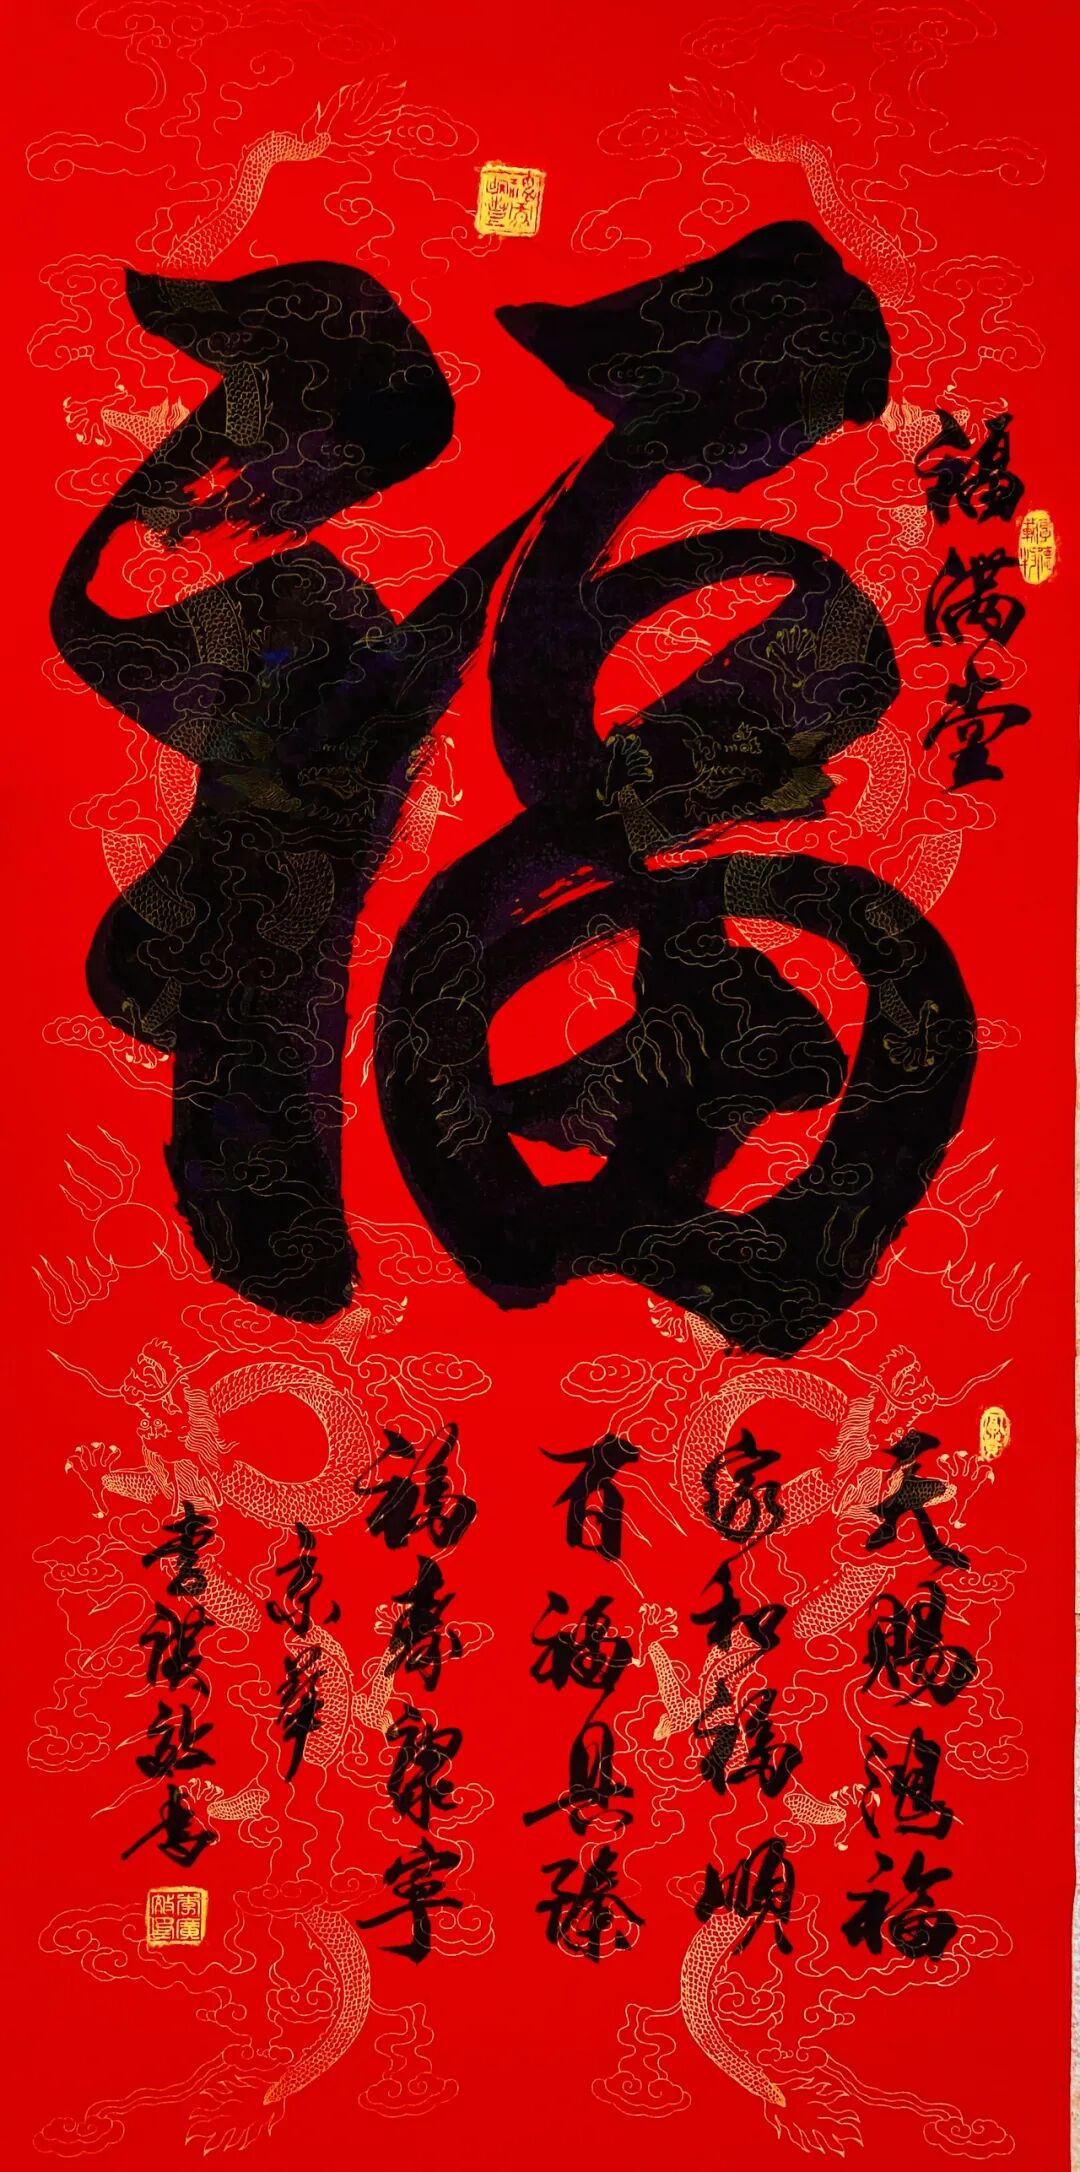 福
福满堂
天赐鸿福
家和福顺
百福具臻
福寿康宁
京华
李敬书